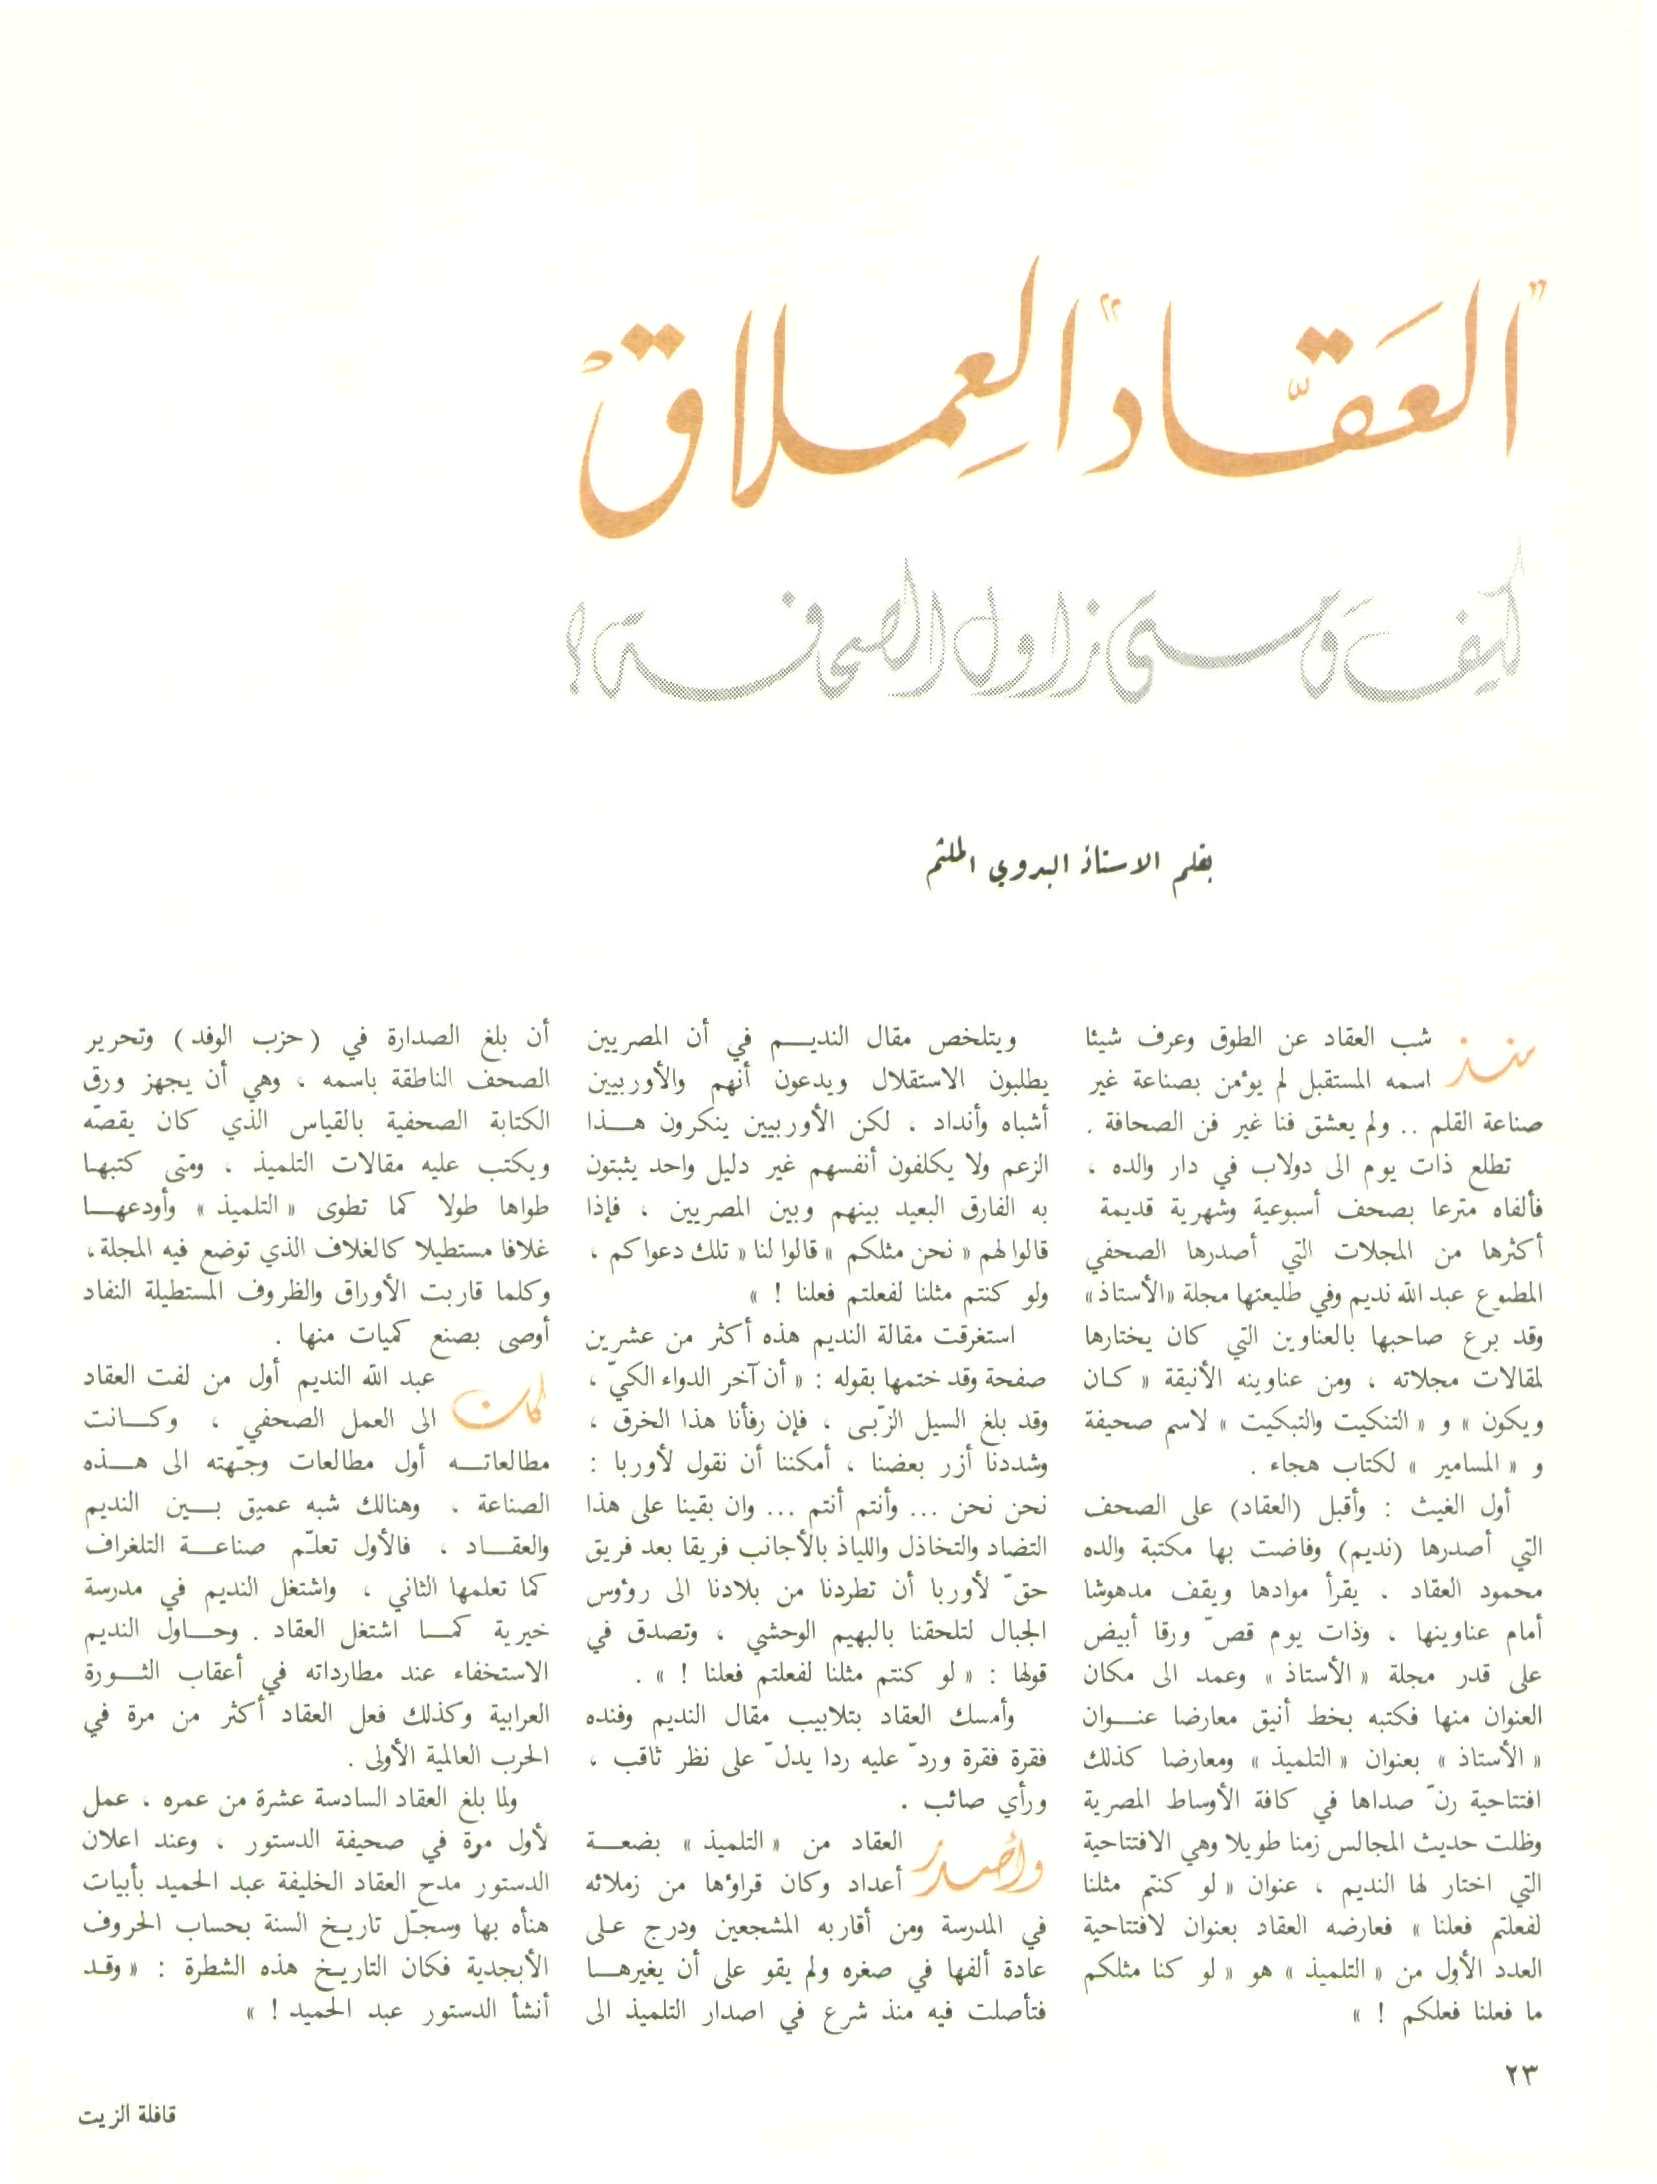 "العَقَّاد" العِملاقْ
كيفَ ومتى زاول الصحافة؟
بقلم الاستاذ البدوي الملثم
منذ شب العقاد عن الطوق وعرف شيئا
اسمه المستقبل لم يؤمن بصناعة غير
صناعة القلم .. ولم يعشق فنا غير فن الصحافة .
تطلع ذات يوم الى دولاب في دار والده ،
فألفاه مترعا بصحف أسبوعية وشهرية قديمة
أكثرها من المجلات التي أصدرها الصحفي
المطبوع عبد الله نديم وفي طليعتها مجلة «الأستاذ»
وقد برع صاحبها بالعناوين التي كان يختارها
لمقالات مجلاته ، ومن عناوينه الأنيقة « كـان
ويكون » و « التنكيت والتبكيت » لاسم صحيفة
و « المسامير » لكتاب هجاء .
أول الغيث : وأقبل (العقاد) على الصحف
التي أصدرها (نديم) وفاضت بها مكتبة والده
محمود العقاد . يقرأ موادها ويقف مدهوشا
أمام عناوينها ، وذات يوم قصّ ورقا أبيض
على قدر مجلة « الأستاذ » وعمد الى مكان
العنوان منها فكتبه بخط أنيق معارضا عنــوان
« الأستاذ » بعنوان « التلميذ » ومعارضا كذلك
افتتاحية رنّ صداها في كافة الأوساط المصرية
وظلت حديث المجالس زمنا طويلا وهي الافتتاحية
التي اختار لها النديم ، عنوان « لو كنتم مثلنا
لفعلتم فعلنا » فعارضه العقاد بعنوان لافتتاحية
العدد الأول من « التلميذ » هو « لو كنا مثلكم
ما فعلنا فعلكم ! »
ويتلخص مقال النديــم في أن المصريين
يطلبون الاستقلال ويدعون أنهم والأوربيين
أشباه وأنداد ، لكن الأوربيين ينكرون هــذا
الزعم ولا يكلفون أنفسهم غير دليل واحد يثبتون
به الفارق البعيد بينهم وبين المصريين ، فإذا
قالوا لهم « نحن مثلكم » قالوا لنا « تلك دعواكم ،
ولو كنتم مثلنا لفعلتم فعلنا ! »
استغرقت مقالة النديم هذه أكثر من عشرين
صفحة وقد ختمها بقوله : « أن آخر الدواء الكيّ ،
وقد بلغ السيل الزّبى ، فإن رفأنا هذا الخرق ،
وشددنا أزر بعضنا ، أمكننا أن نقول لأوربا :
نحن نحن ... وأنتم أنتم ... وان بقينا على هذا
التضاد والتخاذل واللياذ بالأجانب فريقا بعد فريق
حقّ لأوربا أن تطردنا من بلادنا الى رؤوس
الجبال لتلحقنا بالبهيم الوحشي ، وتصدق في
قولها : « لو كنتم مثلنا لفعلتم فعلنا ! » .
وأمسك العقاد بتلابيب مقال النديم وفنده
فقرة فقرة وردّ عليه ردا يدلّ على نظر ثاقب ،
ورأي صائب .
وأصدر العقاد من « التلميذ » بضعــة
أعداد وكان قراؤها من زملائه
في المدرسة ومن أقاربه المشجعين ودرج على
عادة ألفها في صغره ولم يقو على أن يغيرهــا
فتأصلت فيه منذ شرع في اصدار التلميذ الى
أن بلغ الصدارة في (حزب الوفد) وتحرير
الصحف الناطقة باسمه ، وهي أن يجهز ورق
الكتابة الصحفية بالقياس الذي كان يقصّه
ويكتب عليه مقالات التلميذ ، ومتى كتبهـا
طواها طولا كما تطوى « التلميذ » وأودعهــا
غلافا مستطيلا كالغلاف الذي توضع فيه المجلة،
وكلما قاربت الأوراق والظروف المستطيلة النفاد
أوصى بصنع كميات منها .
كان عبد الله النديم أول من لفت العقاد
الى العمل الصحفي ، وكــانت
مطالعاتــه أول مطالعات وجّهته الى هــذه
الصناعة . وهنالك شبه عميق بــين النديم
والعقــاد ، فالأول تعلّم صناعــة التلغراف
كما تعلمها الثاني ، واشتغل النديم في مدرسة
خيرية كمــا اشتغل العقاد . وحــاول النديم
الاستخفاء عند مطارداته في أعقاب الثــورة
العرابية وكذلك فعل العقاد أكثر من مرة في
الحرب العالمية الأولى .
ولما بلغ العقاد السادسة عشرة من عمره ، عمل
لأول مرة في صحيفة الدستور ، وعند اعلان
الدستور مدح العقاد الخليفة عبد الحميد بأبيات
هنأه بها وسجّل تاريخ السنة بحساب الحروف
الأبجدية فكان التاريخ هذه الشطرة : « وقـد
أنشأ الدستور عبد الحميد ! »
٢٣
قافلة الزيت